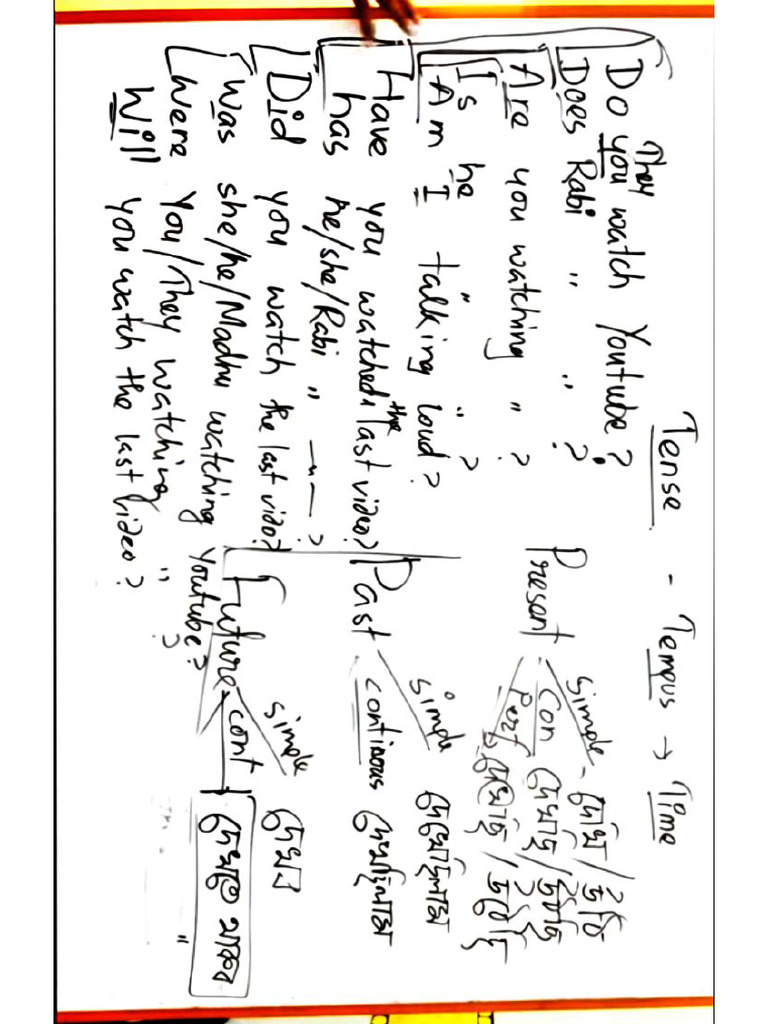 Tense - Tempus → Time
They
Do you watch Youtube?
Does Rabi " " ?
Are you watching " ?
Is he " " ?
Am I talking loud?
Have you watched the last video?
has he/she/Rabi " —"— ?
Did you watch the last vido?
Was she/he/Madhu watching Youtube?
Were You/They watching " ?
Will you watch the last video?
Present
Simple - দেখি /
Con দেখছি /
Perf দেখেছি /
Past
Simple দেখেছিলাম
continous দেখছিলাম
Future
Simple দেখব
cont দেখতে থাকব
"